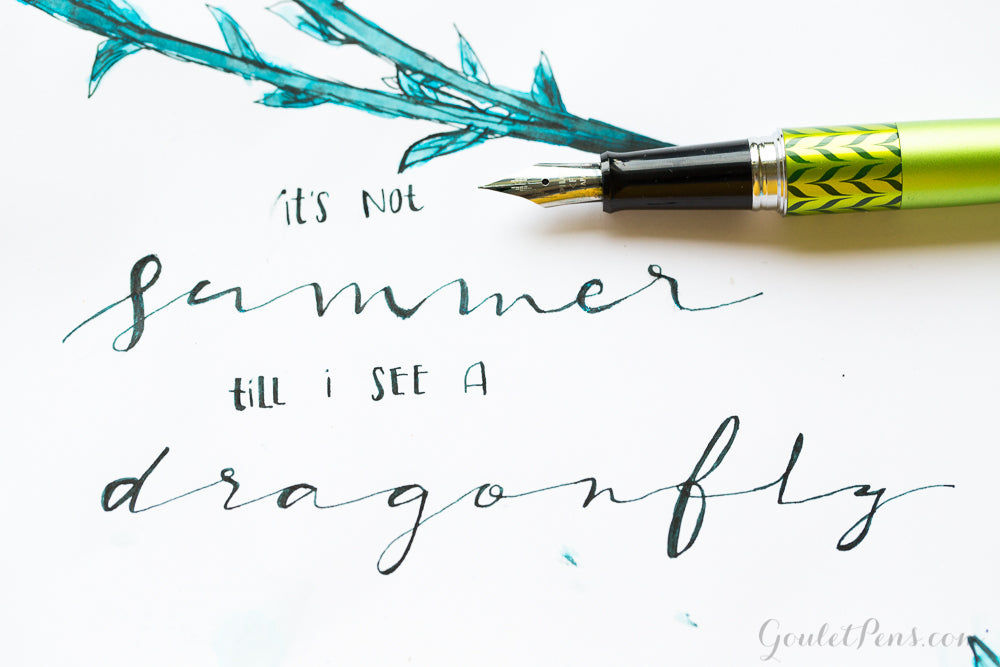 it's Not
summer
till i SEE A
dragonfly
GouletPens.com